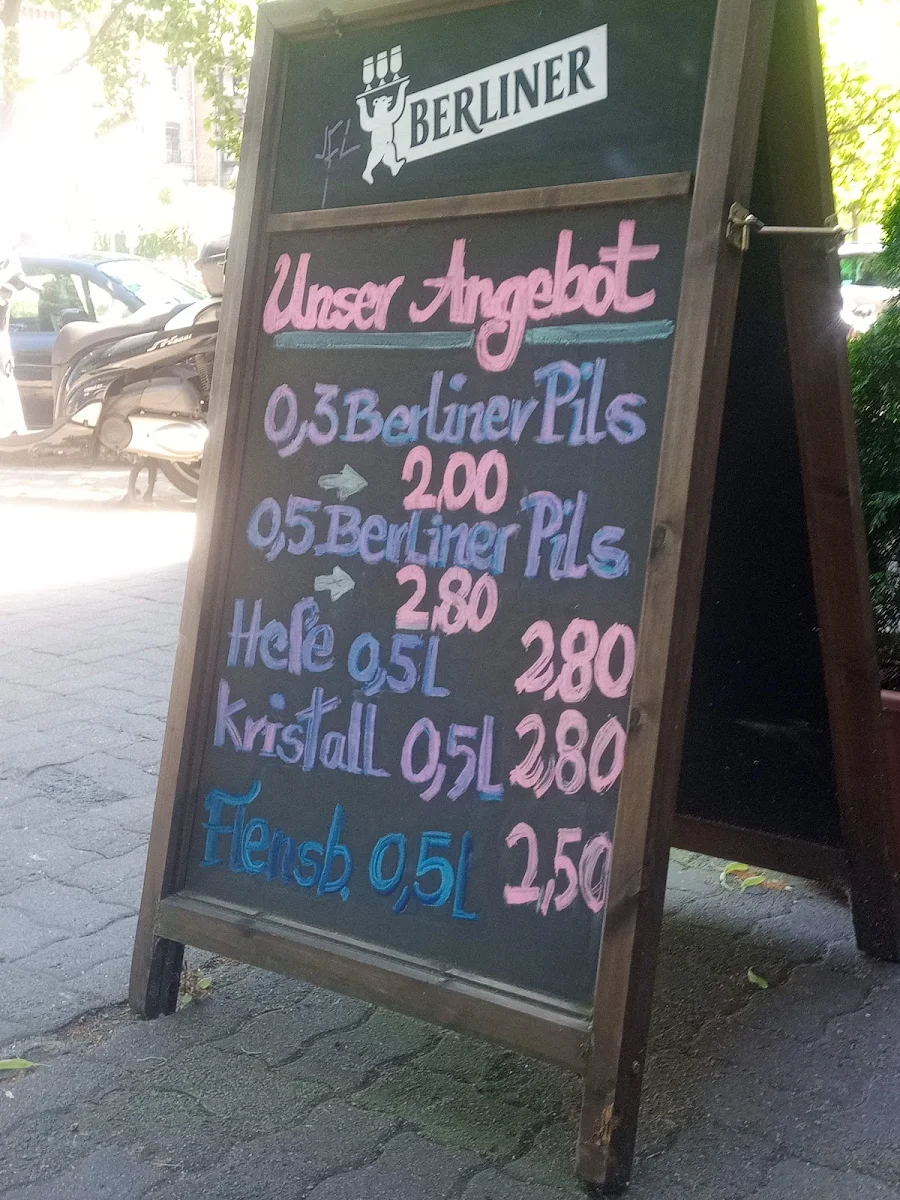 BERLINER
Unser Angebot
0,3 Berliner Pils
2,00
0,5 Berliner Pils
2,80
Hefe 0,5L 2,80
Kristall 0,5L 2,80
Flensb. 0,5l 2,50